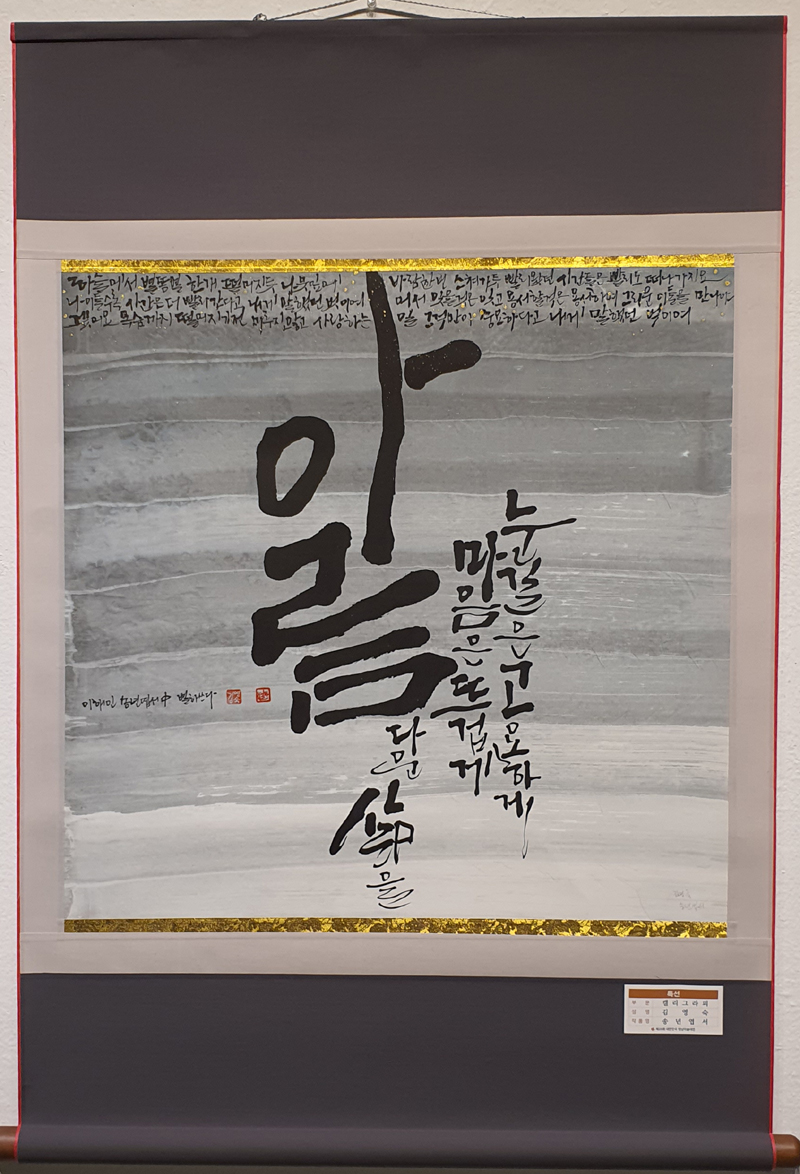 하늘에서 별똥별 한개 떨어지듯 나뭇잎에 바람한번 스쳐가듯 빨리왔던 시간들은 빨리도 떠나가지요
나이들수록 시간은 더 빨리간다고 내게 말했던 벗이여 어서 잊을것은 잊고 용서할것은 용서하며 그리운 이들을 만나야
겠어요 목숨까지 떨어지기전 미루지않고 사랑하는 일 그것만이 중요하다고 내게 말했던 벗이여
눈길은 고요하게
마음은 뜨겁게
아름다운 삶을
이해인 송년엽서中 별하쓰다
특선
부 문 캘리그라피
성 명 김명숙
작품명 송년엽서